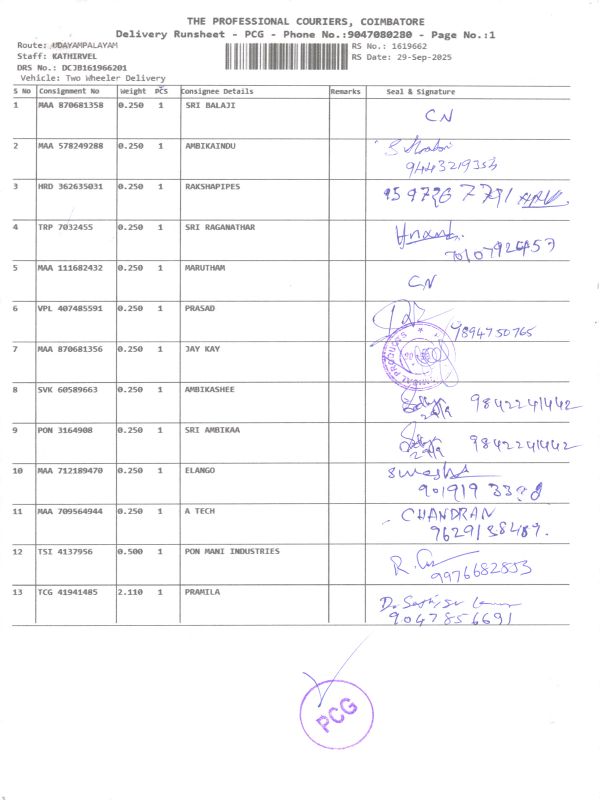 THE PROFESSIONAL COURIERS, COIMBATORE
Delivery Runsheet - PCG - Phone No.:9047080280 - Page No.:1
Route: UDAYAMPALAYAM RS No.: 1619662
Staff: KATHIRVEL RS Date: 29-Sep-2025
DRS No.: DCJB161966201
Vehicle: Two Wheeler Delivery
S No Consignment No Weight PCS Consignee Details Remarks Seal & Signature
1 MAA 870681358 0.250 1 SRI BALAJI CN
2 MAA 578249288 0.250 1 AMBIKAINDU
9443219353
3 HRD 362635031 0.250 1 RAKSHAPIPES 959726 7791
4 TRP 7032455 0.250 1 SRI RAGANATHAR
5 MAA 111682432 0.250 1 MARUTHAM CN
6 VPL 407485591 0.250 1 PRASAD
9894750765
7 MAA 870681356 0.250 1 JAY KAY
8 SVK 60589663 0.250 1 AMBIKASHEE 9842241442
29/9
9 PON 3164908 0.250 1 SRI AMBIKAA 9842241442
29/9
10 MAA 712189470 0.250 1 ELANGO
11 MAA 709564944 0.250 1 A TECH CHANDRAN
9629138489.
12 TSI 4137956 0.500 1 PON MANI INDUSTRIES
9976682853
13 TCG 41941485 2.110 1 PRAMILA
9047856691
PCG